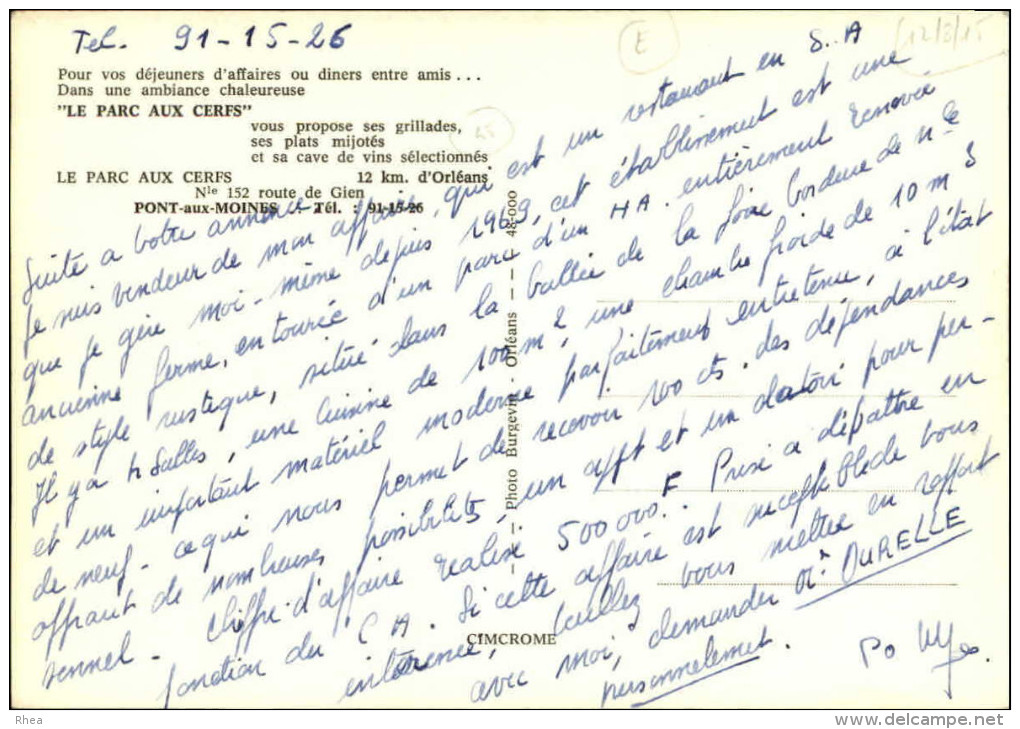 Tel. 91-15-26
E
12/8/15
Pour vos déjeuners d'affaires ou diners entre amis...
Dans une ambiance chaleureuse
"LE PARC AUX CERFS"
vous propose ses grillades,
ses plats mijotés
et sa cave de vins sélectionnés
LE PARC AUX CERFS 12 km. d'Orléans
Nle 152 route de Gien
PONT-aux-MOINES - Tél. : 91-15-26
Suite a votre annonce
je suis vendeur de mon affaire, qui est un restaurant en S.A
que je gère moi-même depuis 1969, cet établissement est une
ancienne ferme, entourée d'un parc d'un HA. entièrement renovée
de style rustique, située dans la vallée de la Loire bordure de
Il y a 4 salles, une cuisine de 100 m2, une chambre froide de 10 m3
et un important matériel moderne parfaitement entretenu, à l'état
de neuf - ce qui nous permet de recevoir 100 cts. des dépendances
offrant de nombreuses possibilités, un appt et un dortoir pour per-
sonnel - Chiffre d'affaire realisé 500 000.. F Prix a débattre en
fonction du C A. Si cette affaire est suceptible de vous
intéressée, veuillez vous mettre en rapport
avec moi, demander Mr OURELLE
personnelement.
Photo Burgevin - Orléans - 48-000
CIMCROME
Rhea
www.delcampe.net